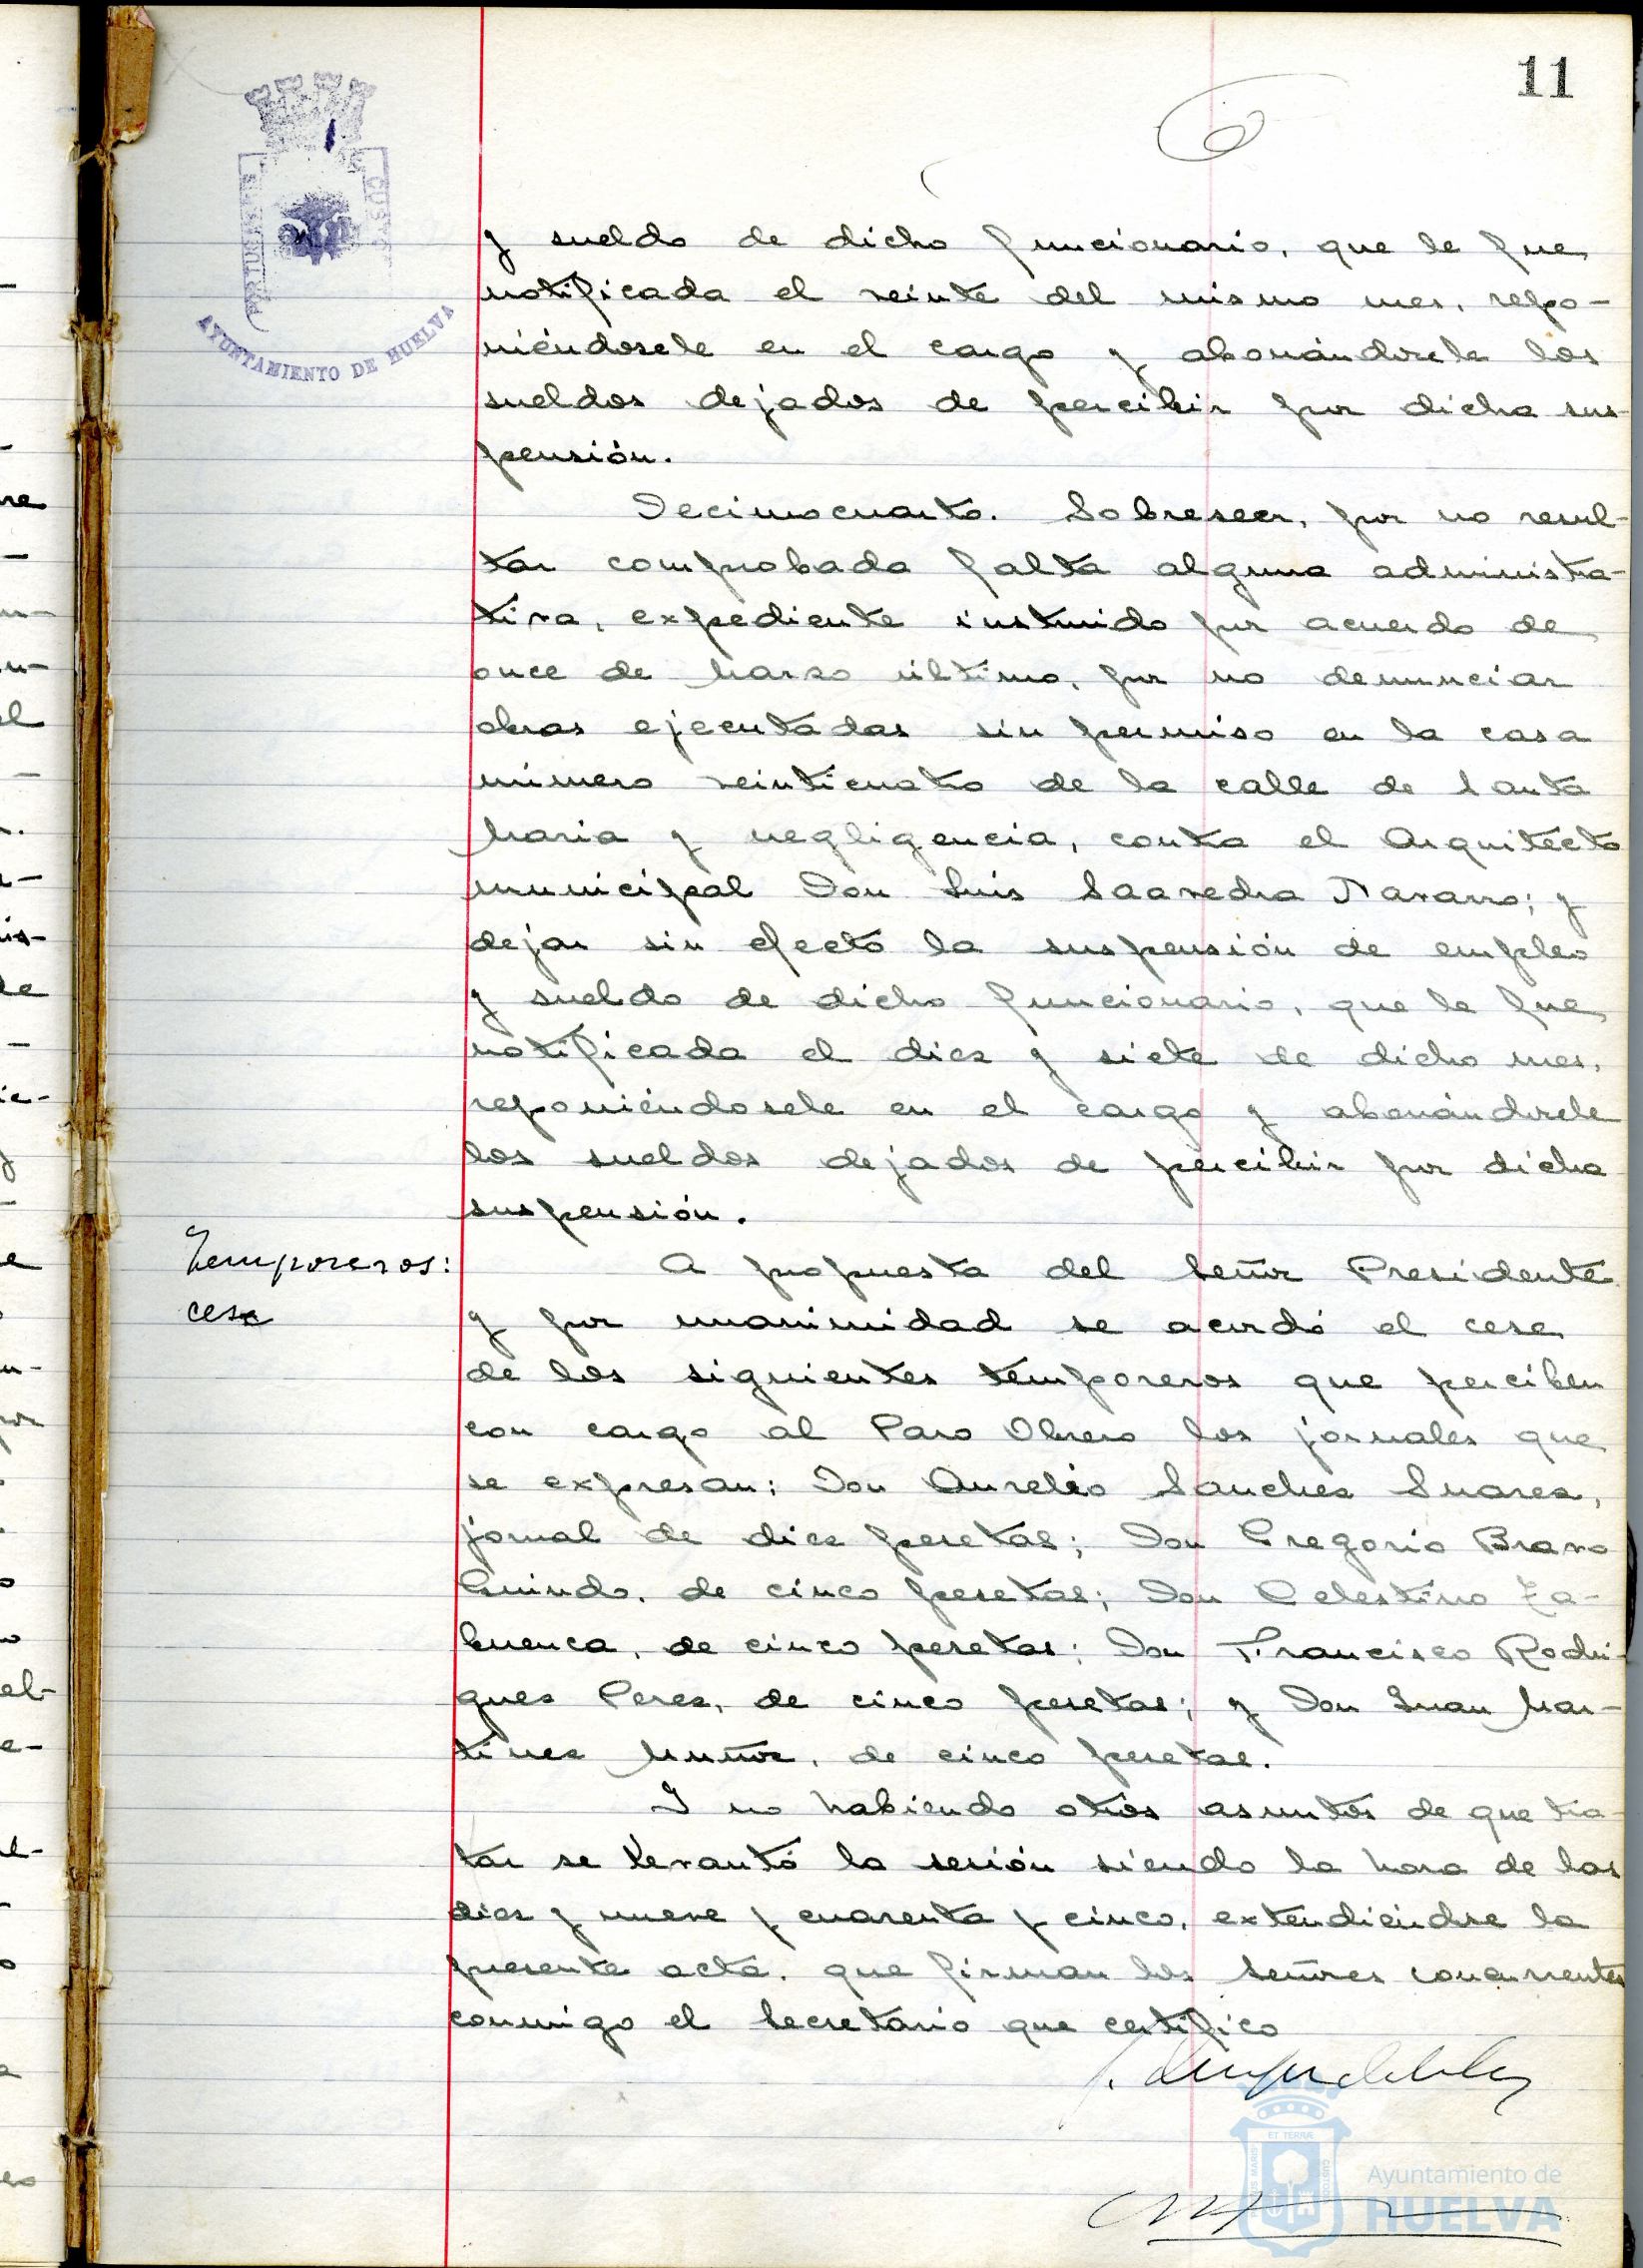 11
PORTUS MARIS
CUSTO
AYUNTAMIENTO DE HUELVA
y sueldo de dicho funcionario, que le fue
notificada el veinte del mismo mes, repo-
niéndosele en el cargo y abonándosele los
sueldos dejados de percibir por dicha sus-
pensión.
Decimocuarto. Sobreseer, por no resul-
tar comprobada falta alguna administra-
tiva, expediente instruido por acuerdo de
once de Marzo último, por no denunciar
obras ejecutadas sin permiso en la casa
número veinticuatro de la calle de Santa
Maria y negligencia, contra el Arquitecto
municipal Don Luis Saavedra Navarro; y
dejar sin efecto la suspensión de empleo
y sueldo de dicho funcionario, que le fue
notificada el diez y siete de dicho mes,
reponiéndosele en el cargo y abonándosele
los sueldos dejados de percibir por dicha
suspensión.
Temporeros:
cese
A propuesta del Señor Presidente
y por unanimidad se acordó el cese
de los siguientes temporeros que perciben
con cargo al Paro Obrero los jornales que
se expresan: Don Aurelio Sanchez Suarez,
jornal de diez pesetas; Don Gregorio Bravo
Guindo, de cinco pesetas; Don Celestino Za-
buenca, de cinco pesetas; Don Francisco Rodri-
guez Perez, de cinco pesetas; y Don Juan Mar-
tinez Muñoz, de cinco pesetas.
Y no habiendo otros asuntos de que tra-
tar se levantó la sesión siendo la hora de las
diez y nueve y cuarenta y cinco, extendiéndose la
presente acta, que firman los señores concurrentes
conmigo el Secretario que certifico
Ayuntamiento de
HUELVA